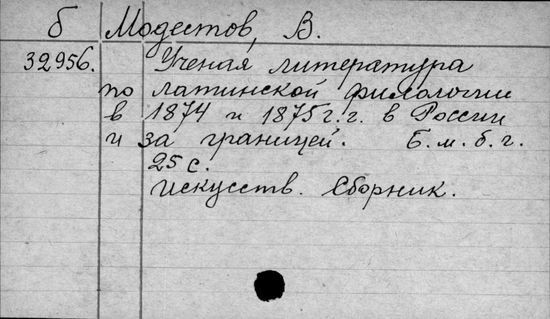 б Модестов, В.
32956. Ученая литература
по латинской филологии
в 1874 и 1875 г.г. в России
и за границей. Б. м. б. г.
25 с.
искусств. Сборник.